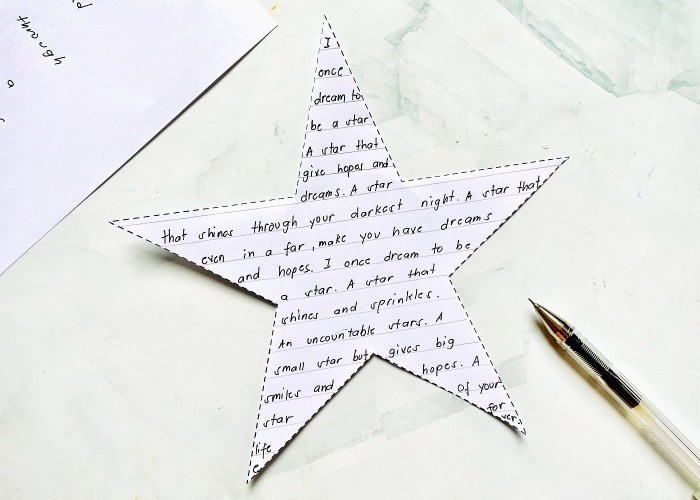 I
once
dream to
be a star
A star that
give hopes and
dreams. A star
that shines through your darkest night. A star that
even in a far, make you have dreams
and hopes. I once dream to be
a star. A star that
shines and sprinkles.
An uncountable stars. A
small star but gives big
smiles and hopes. A
star of your
life for
e ver